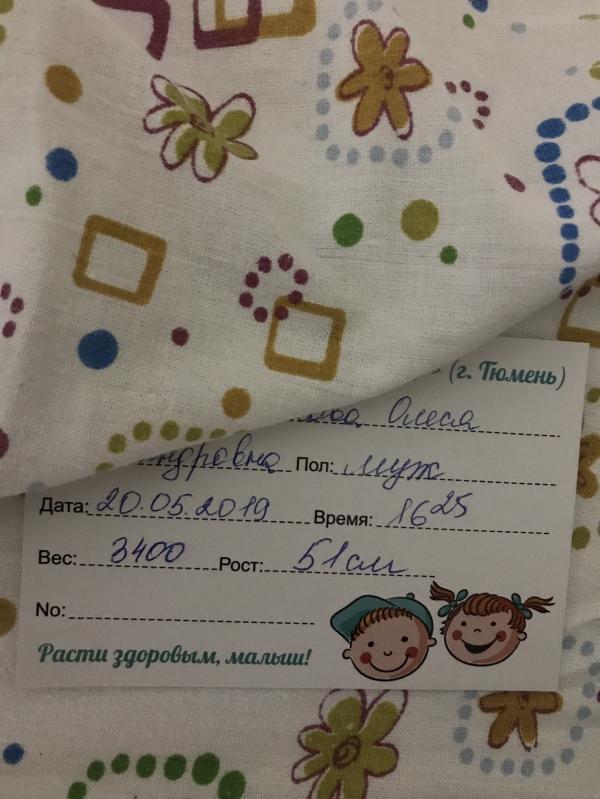 (г. Тюмень)
Олеся
Пол: муж
Дата: 20.05.2019 Время: 16 25
Вес: 3400 Рост: 51см
No:
Расти здоровым, малыш!